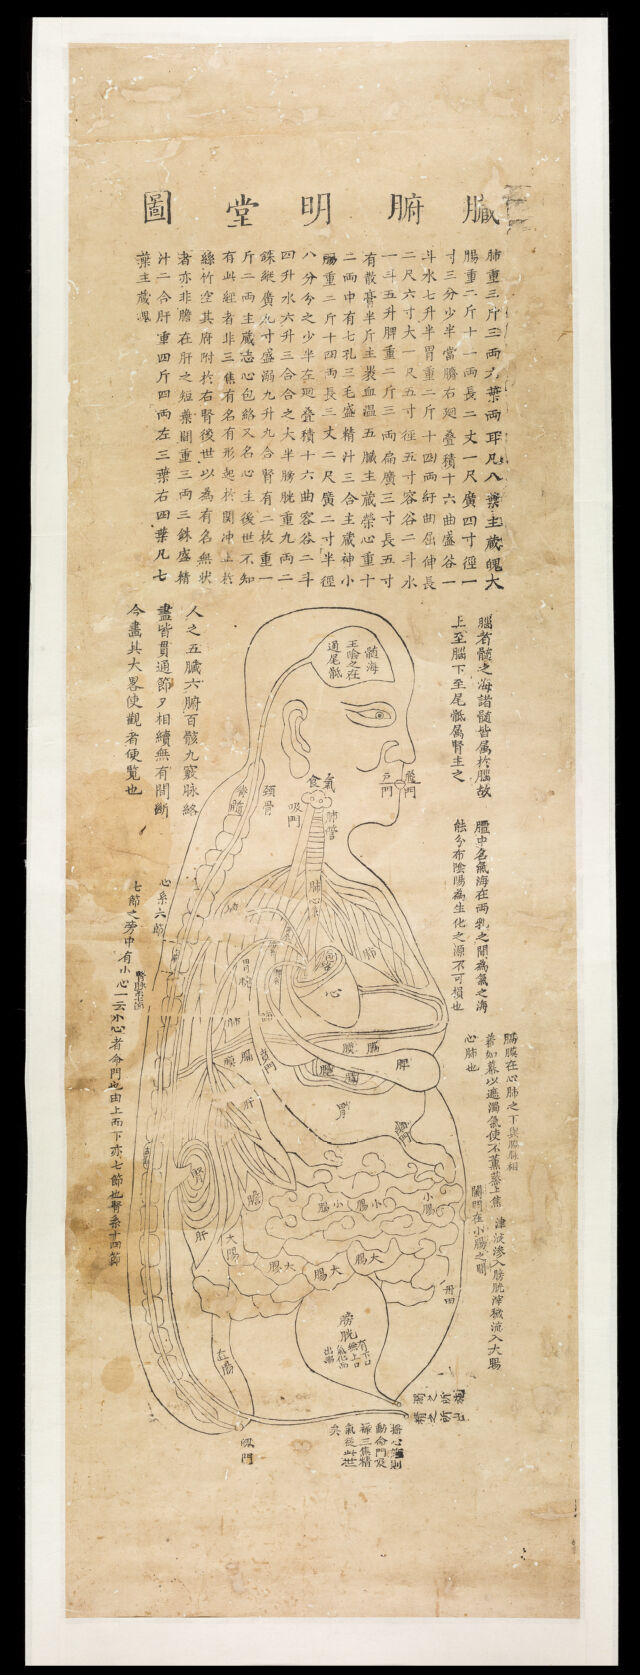 臟腑明堂圖
肺重三斤三両六葉両耳凡八葉主蔵魄大
腸重二斤十一両長二丈一尺廣四寸徑一
寸三分少半當臍右廻疊積十六曲盛谷一
斗水七升半胃重二斤十四両紆曲屈伸長
二尺六寸大一尺五寸徑五寸容谷二斗水
一斗五升脾重二斤三両扁廣三寸長五寸
有散膏半斤主裹血温五臟主蔵榮心重十
二両中有七孔三毛盛精汁三合主蔵神小
腸重二斤十四両長三丈二尺廣二寸半徑
八分分之少半左廻疊積十六曲容谷二斗
四升水六升三合合之大半膀胱重九両二
銖縱廣九寸盛溺九升九合腎有二枚重一
斤二両主蔵志心包絡又名心主後世不知
有此経者非三焦有名有形起於関冲止於
絲竹空其府附於右腎後世以為有名無狀
者亦非膽在肝之短葉間重三両三銖盛精
汁二合肝重四斤四両左三葉右四葉凡七
葉主蔵魂
腦者髓之海諸髓皆属於腦故
上至腦下至尾骶属腎主之
人之五臟六腑百骸九竅脉絡
盡皆貫通節々相續無有間斷
今畫其大畧使觀者便覧也
髓海
至陰之在
通尾骶
飛門
戸門
氣
食
吸門
肺管
頚骨
脊髓
膻中名氣海在両乳之間為氣之海
能分布陰陽為生化之源不可損也
心系六節
七節之旁中有小心一云小心者命門也由上而下亦七節也腎系十四節
膈膜在心肺之下與脇脉相
著如幕以遮濁氣使不薰蒸上焦
心肺也
津液滲入膀胱滓穢流入大腸
闌門在小腸之間
肺
心
肺
膈膜
膈膜
賁門
脾
胃
肝
腎
肝
膽
小腸
小腸
小腸
大腸
大腸
大腸
大腸
丹田
膀胱
有下口
無上口
氣化而
出焉
直腸
溺之所
精之所出
魄門